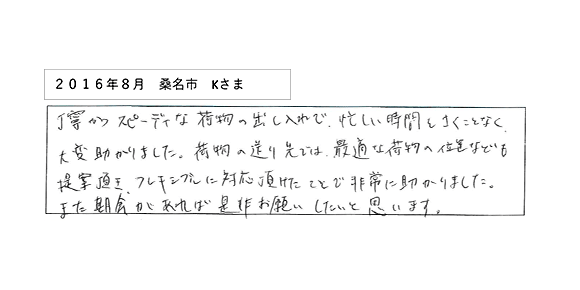 2016年8月 桑名市 Kさま
丁寧かつスピーディな荷物の出し入れで、忙しい時間をさくことなく、
大変助かりました。荷物の送り先では、最適な荷物の位置なども
提案頂き、フレキシブルに対応頂けたことで非常に助かりました。
また機会があれば是非お願いしたいと思います。